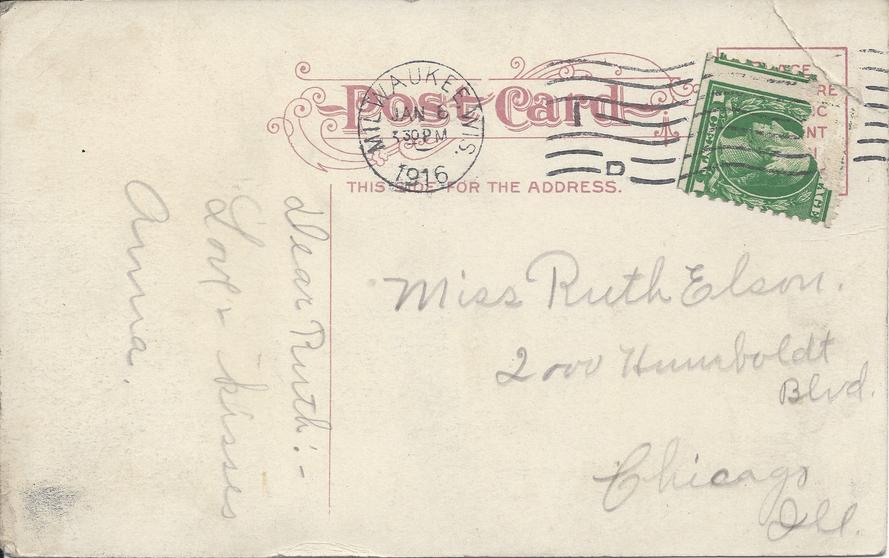 Post Card
MILWAUKEE, WIS.
JAN 6
3 30 PM
1916
D
THIS SIDE FOR THE ADDRESS.
Dear Ruth:-
Love & kisses
Anna.
Miss Ruth Elson.
2000 Humboldt
Blvd.
Chicago
Ill.